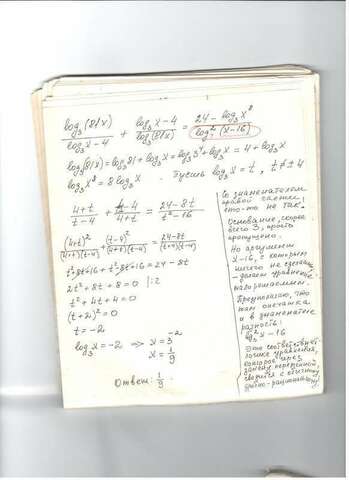 log₃(81x)/(log₃x-4) + (log₃x-4)/log₃(81x) = (24-log₃x⁸)/(log²(x-16))
log₃(81x)=log₃81+log₃x=log₃3⁴+log₃x=4+log₃x
log₃x⁸=8log₃x. Пусть log₃x=t, t≠±4
(4+t)/(t-4) + (t-4)/(4+t) = (24-8t)/(t²-16)
(4+t)²/((4+t)(t-4)) + (t-4)²/((4+t)(t-4)) = (24-8t)/((4+t)(t-4))
t²+8t+16+t²-8t+16=24-8t
2t²+8t+8=0 |:2
t²+4t+4=0
(t+2)²=0
t=-2
log₃x=-2 ⇒ x=3⁻²
x=1/9
Ответ: 1/9.
Со знаменателем
правой части
что-то не так.
Основание, скорее
всего 3, просто
пропущено.
Но аргумент
x-16, с которым
ничего не сделать
делает уравнение
нерешаемым.
Предполагаю, что
там опечатка
и в знаменателе
разность:
log₃²x-16
Это соответствует
логике уравнения,
которое через
замену переменной,
сводится к обычному
дробно-рациональному